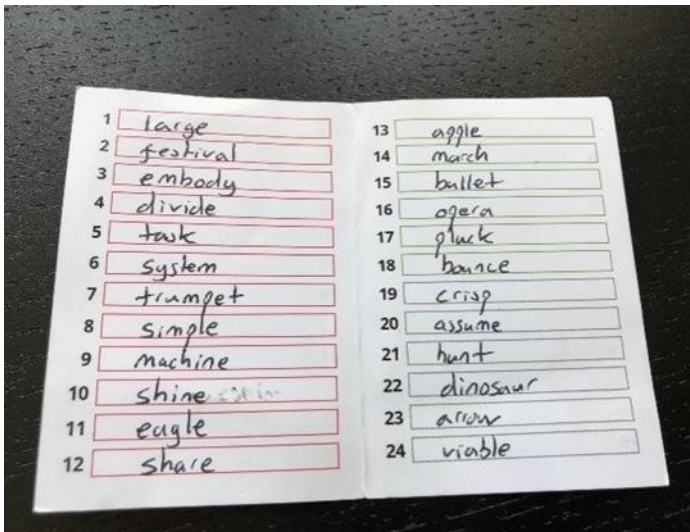 1 large
2 festival
3 embody
4 divide
5 task
6 system
7 trumpet
8 simple
9 machine
10 shine
11 eagle
12 share
13 apple
14 march
15 bullet
16 opera
17 pluck
18 bounce
19 crisp
20 assume
21 hunt
22 dinosaur
23 arrow
24 viable